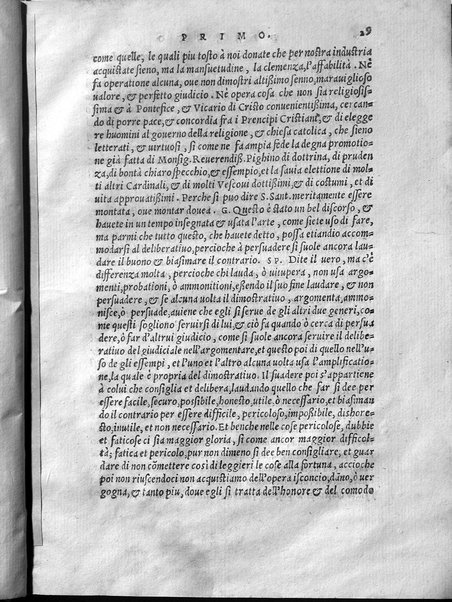 PRIMO. 29
come quelle, le quali piu tosto à noi donate che per nostra industria
acquistate sieno, ma la mansuetudine, la clemenza, l'affabilità. Nè
fa operatione alcuna, oue non dimostri altißimo senno, marauiglioso
ualore, & perfetto giudicio. Nè opera cosa che non sia religiosiß-
sima & à Pontefice, & Vicario di Cristo conuenientißima, cercan-
do di porre pace, & concordia fra i Prencipi Cristiani, & di elegge
re huomini al gouerno della religione, & chiesa catolica, che sieno
letterati, & uirtuosi, si come ne fa ampia fede la degna promotio-
ne già fatta di Monsig. Reuerendiß. Pighino di dottrina, di pruden
za, di bontà chiaro specchio, & essempio, et la sauia elettione di mol-
ti altri Cardinali, & di molti Vescoui dottißimi, & di costumi, et di
uita approuatißimi. Perche si puo dire S. Sant. meritamente essere
montata, oue montar douea. G. Questo è stato un bel discorso, &
hauete in un tempo insegnata, & usata l'arte, come siete uso di fare,
ma parmi che tutto questo, che hauete detto, possa etiandio accom-
modarsi al deliberatiuo, percioche à persuadere si suole ancora lau-
dare il buono & biasimare il contrario. SP. Dite il uero, ma c'è
differenza molta, percioche chi lauda, ò uitupera, non usa argo-
menti, probationi, ò ammonitioni, eßendo il suo fine laudare, & non
persuadere, & se alcuna uolta il dimostratiuo, argomenta, ammo-
nisce, ò persuade, auiene che egli si serue de gli altri due generi, co-
me questi sogliono seruirsi di lui, & ciò fa quando ò cerca di persua
dere, ò far d'altrui giudicio, come si suole ancora seruire il delibe-
ratiuo del giudiciale nell'argomentare, et questo poi di quello nell'u-
so de gli essempi, et l'uno et l'altro alcuna uolta usa l'amplificatio-
ne, la quale è propria del dimostratiuo. Il suadere poi s'appartiene
à colui che consiglia et delibera, laudando quello che far si dee per
essere facile, securo, poßibile, honesto, utile, ò necessario, et biasiman
do il contrario per essere difficile, pericoloso, impoßibile, dishone-
sto, inutile, et non necessario. Et benche nelle cose pericolose, dubbie
et faticose ci sia maggior gloria, si come ancor maggior difficol-
tà; fatica et pericolo, pur non dimeno si dee ben consigliare, et guar
dare di non cōmettere così di leggieri le cose alla fortuna, accioche
poi non riuscendoci non acquistiamo dell'opera isconcio, dāno, ò uer
gogna, & tanto piu, doue egli si tratta dell'honore & del comodo